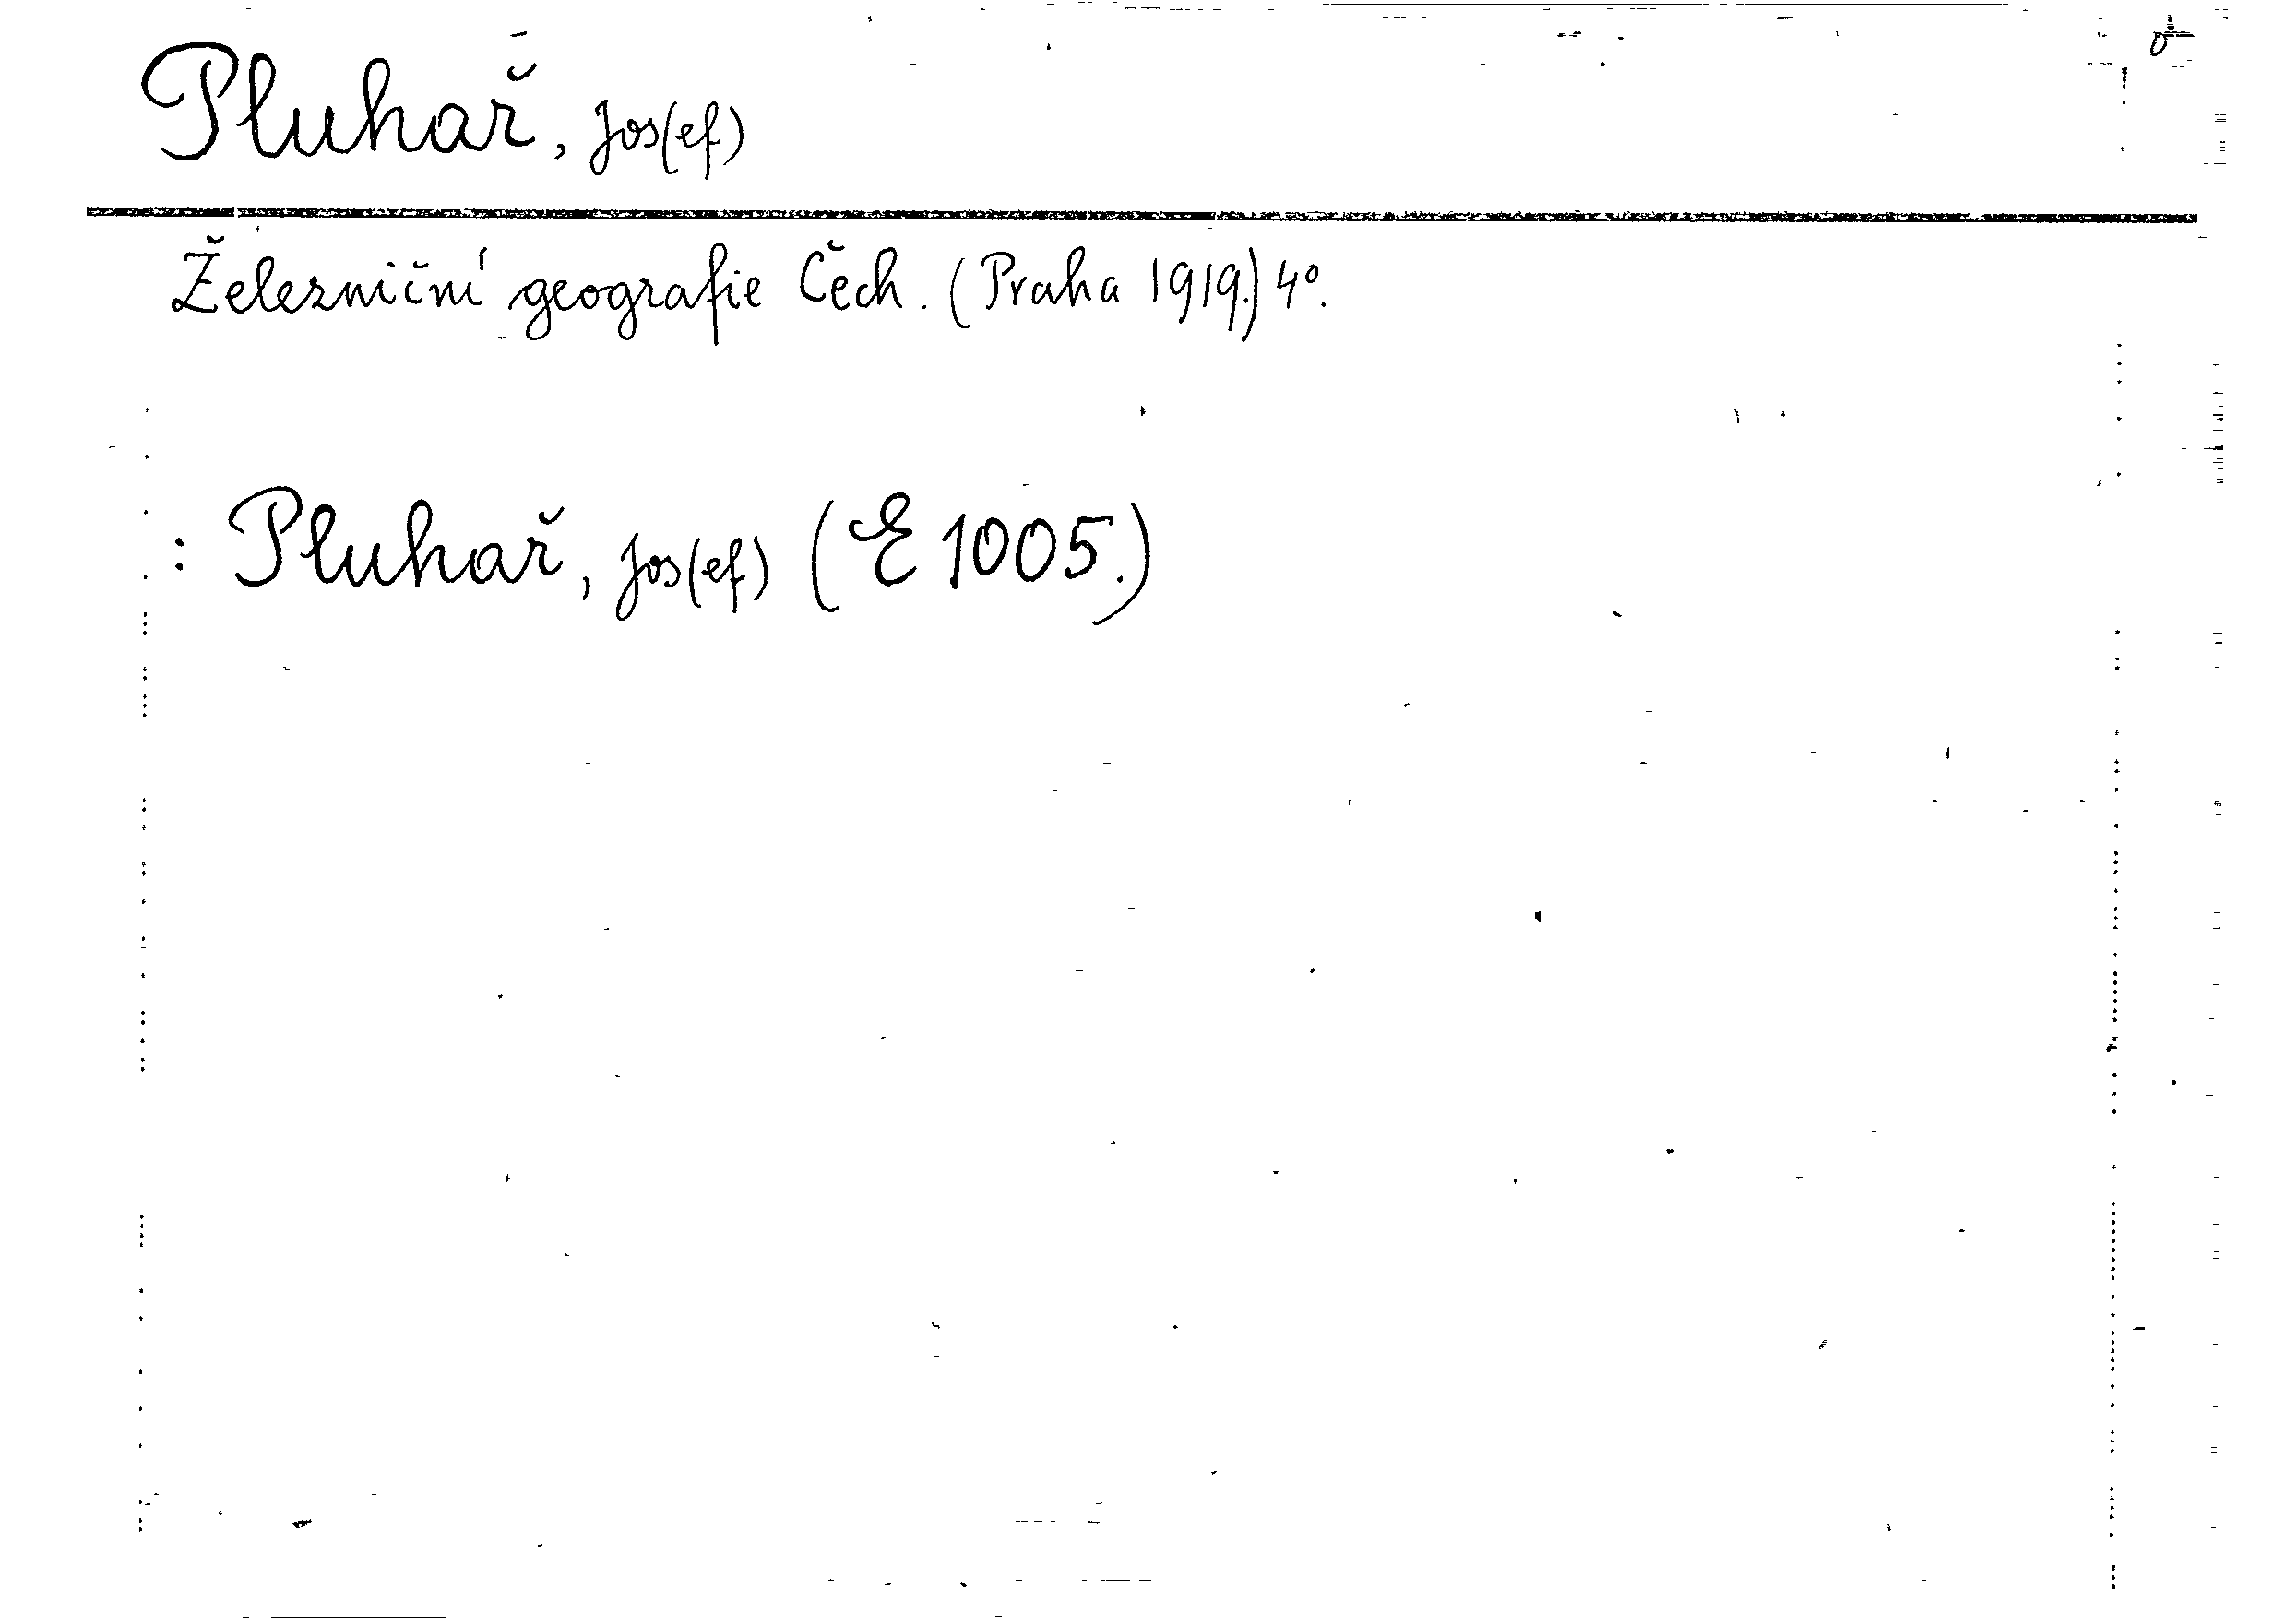 Pluhař, Jos(ef)
Železniční geografie Čech. (Praha 1919.) 4º.
: Pluhař, Jos(ef) (E 1005.)